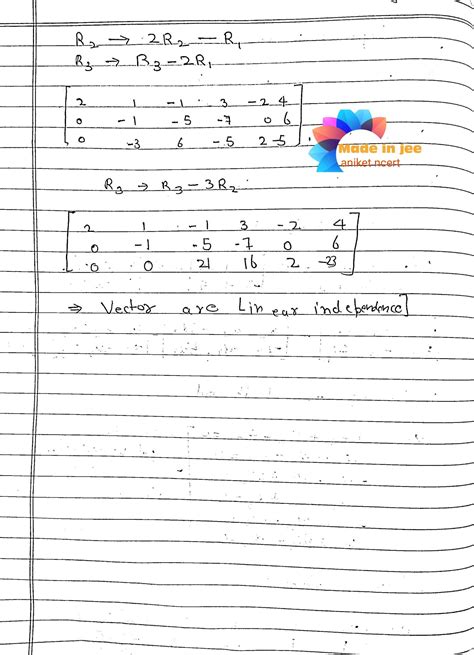 R₂ → 2R₂ — R₁
R₃ → R₃ – 2R₁
2 1 –1 3 –2 4
0 –1 –5 –7 0 6
0 –3 6 –5 2 –5
Made in jee
aniket ncert
R₃ → R₃ – 3R₂
2 1 –1 3 –2 4
0 –1 –5 –7 0 6
0 0 21 16 2 –23
⇒ Vector are Linear independence]